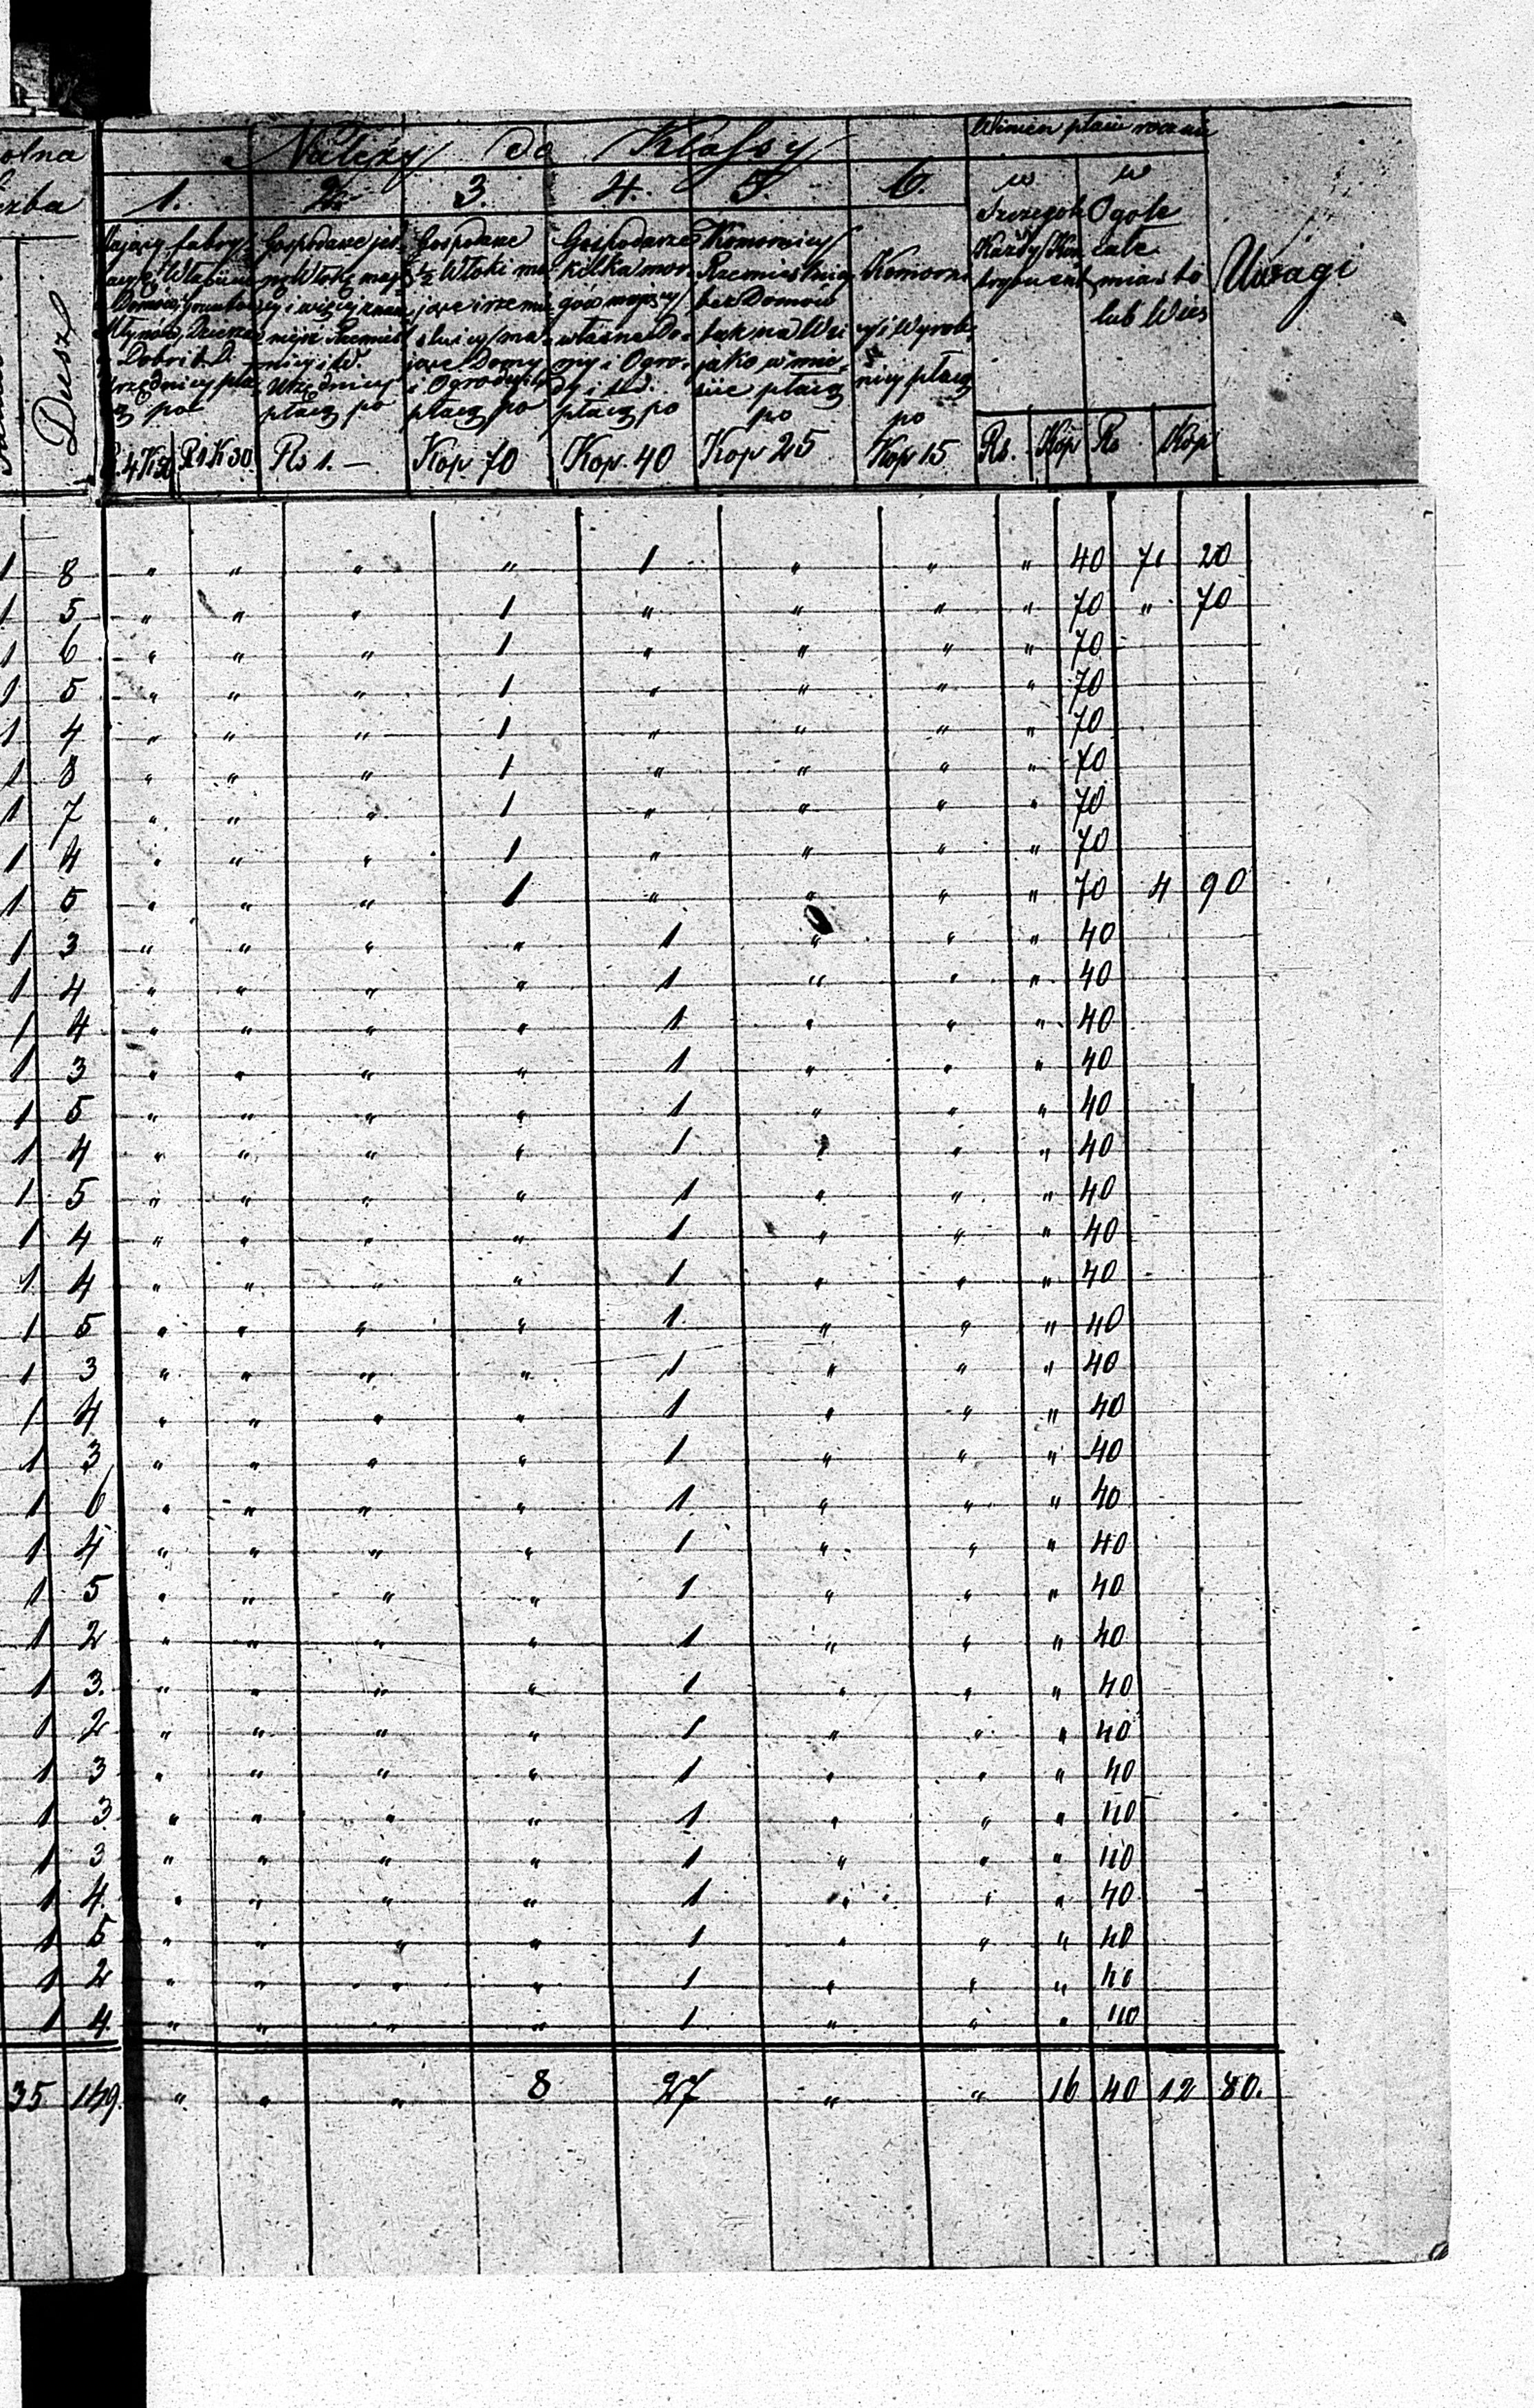 Należy do Klassy
Winien płacić rocznie
olna
czba
1. 2. 3. 4. 5. 6.
w w
Szczególe Ogóle
Każdy Kon całe
trybuent miasto
lub Wieś
Uwagi
Dusz
Mający fabry-
Domów,
Młynów,
Dóbr i t. D.
Urzędnicy pła-
cą po
4 K 50 Rs 1 K 30
Gospodarze
płacą po
Rs 1. —
Gospodarze
½ Włóki ma-
jące Domy
i Ogrody i t.
płacą po
Kop 70
Gospodarze
kilka mor-
gów mający
własne Do-
my i Ogro-
dy i t. d.
płacą po
Kop. 40
Komornicy
Rzemieślnicy
bez Domów
tak na Wsi
jako w mie-
ście płacą
po
Kop 25
Komorni-
cy i Wyrob-
nicy płacą
po
Kop 15
Rs. Kop Rs Kop
1 8 " " " " 1 " " " 40 71 20
1 5 " " " 1 " " " " 70 " 70
1 6 " " " 1 " " " " 70
1 5 " " " 1 " " " " 70
1 4 " " " 1 " " " " 70
1 8 " " " 1 " " " " 70
1 7 " " " 1 " " " " 70
1 4 " " " 1 " " " " 70
1 5 " " " 1 " " " " 70 4 90
1 3 " " " " 1 " " " 40
1 4 " " " " 1 " " " 40
1 4 " " " " 1 " " " 40
1 3 " " " " 1 " " " 40
1 5 " " " " 1 " " " 40
1 4 " " " " 1 " " " 40
1 5 " " " " 1 " " " 40
1 4 " " " " 1 " " " 40
1 4 " " " " 1 " " " 40
1 5 " " " " 1 " " " 40
1 3 " " " " 1 " " " 40
1 4 " " " " 1 " " " 40
1 3 " " " " 1 " " " 40
1 6 " " " " 1 " " " 40
1 4 " " " " 1 " " " 40
1 5 " " " " 1 " " " 40
1 2 " " " " 1 " " " 40
1 3. " " " " 1 " " " 40
1 2 " " " " 1 " " " 40
1 3 " " " " 1 " " " 40
1 3 " " " " 1 " " " 40
1 3 " " " " 1 " " " 40
1 4. " " " " 1 " " " 40
1 5 " " " " 1 " " " 40
1 2 " " " " 1 " " " 40
1 4. " " " " 1 " " " 40
35 149. " " " 8 27 " " 16 40 12 80.